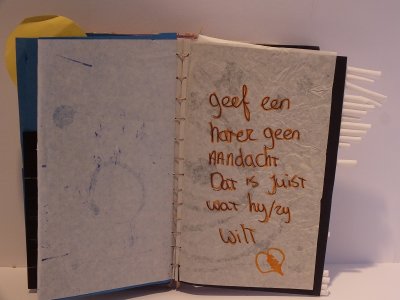 geef een
hater geen
AANdACHT
Dat is juist
wat hy/zy
wilt